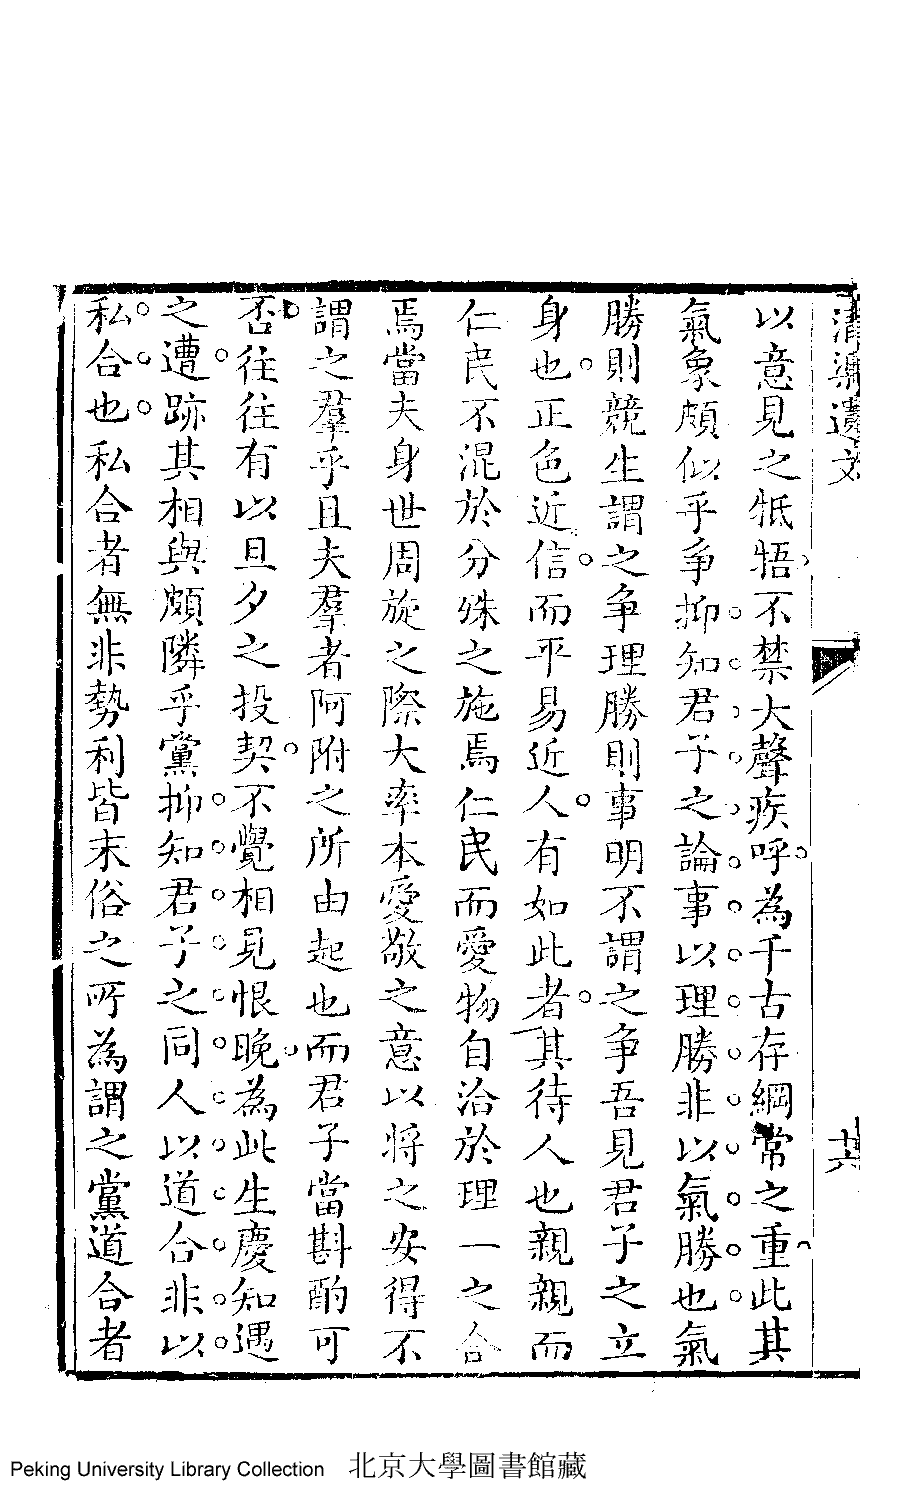 清渠遺文
十六
以意見之牴牾不禁大聲疾呼為千古存綱常之重此其
氣象頗似乎爭抑知君子之論事以理勝非以氣勝也氣
勝則競生謂之爭理勝則事明不謂之爭吾見君子之立
身也正色近信而平易近人有如此者其待人也親親而
仁民不混於分殊之施焉仁民而愛物自洽於理一之合
焉當夫身世周旋之際大率本愛敬之意以將之安得不
謂之羣乎且夫羣者阿附之所由起也而君子當斟酌可
否往往有以旦夕之投契不覺相見恨晚為此生慶知遇
之遭跡其相與頗隣乎黨抑知君子之同人以道合非以
私合也私合者無非勢利皆末俗之所為謂之黨道合者
Peking University Library Collection 北京大學圖書館藏